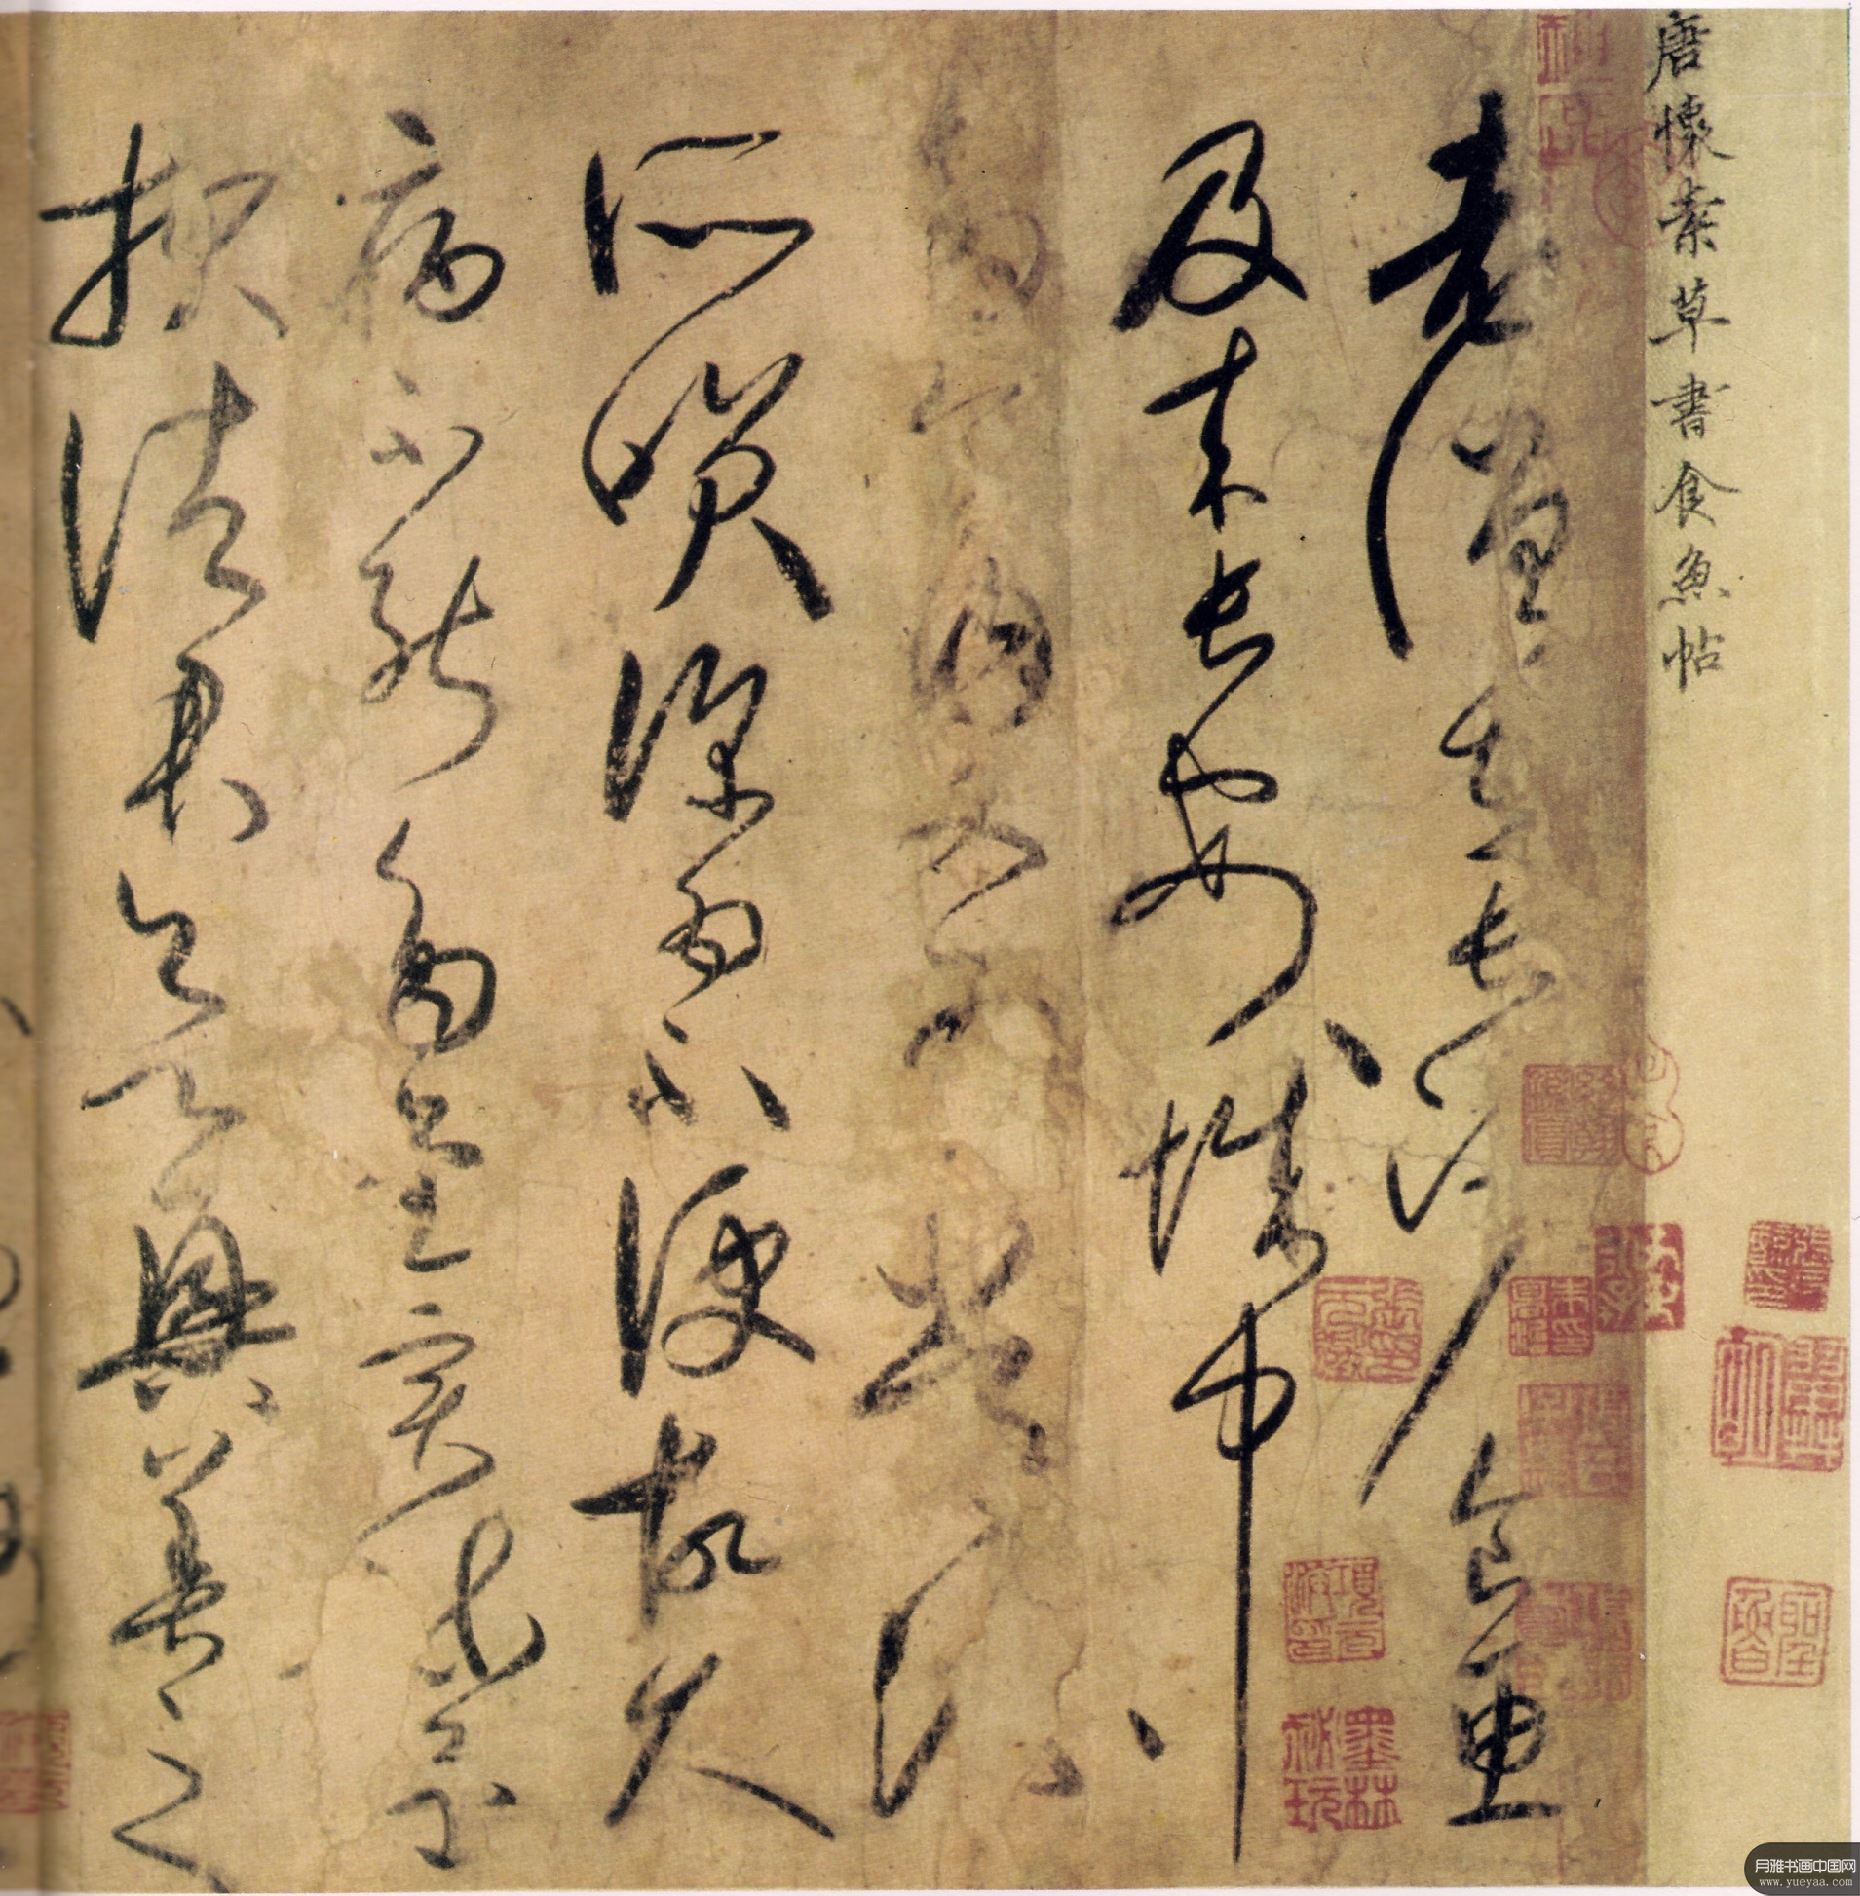 唐懷素草書食魚帖
老僧在長沙食魚
及来長安城中
多食肉又為常流
所笑深為不便故久
病不能多書實疏還
報諸君欲興善之
項元汴印
墨林秘玩
月雅书画中国网
www.yueyaa.com